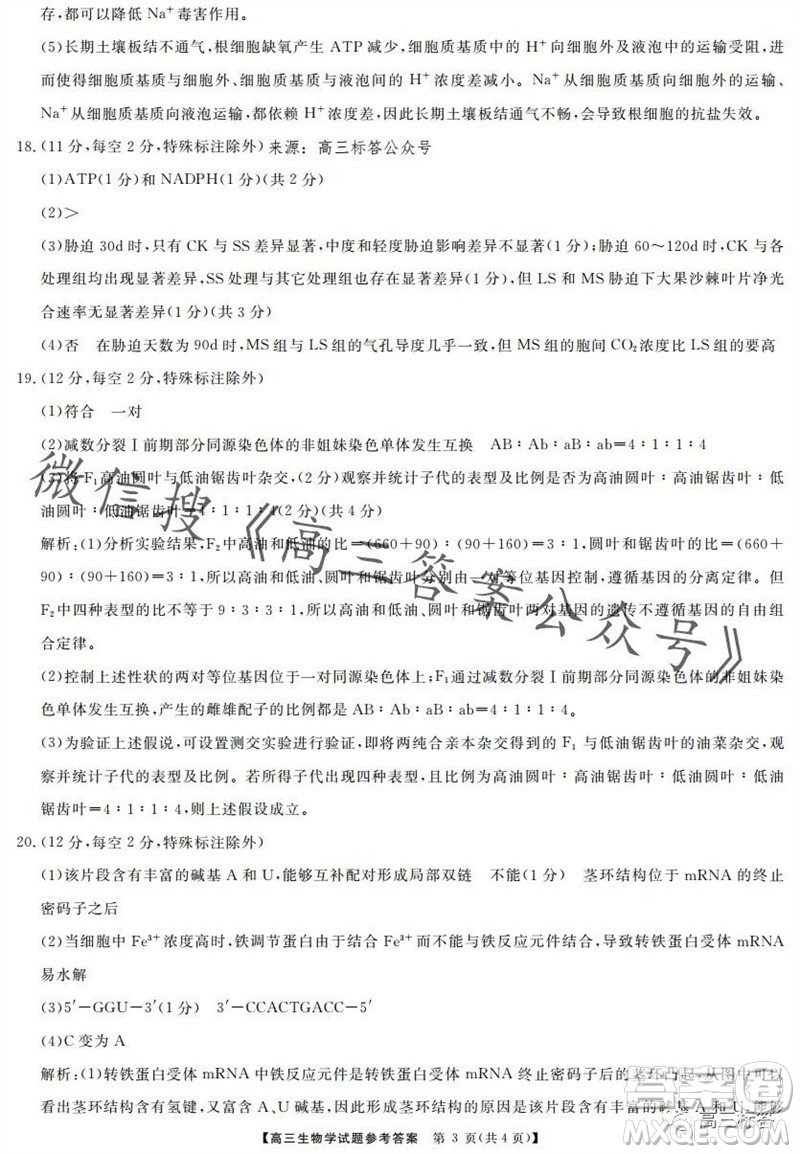 存,都可以降低 Na⁺毒害作用。
(5)长期土壤板结不通气,根细胞缺氧产生 ATP 减少,细胞质基质中的 H⁺向细胞外及液泡中的运输受阻,进
而使得细胞质基质与细胞外、细胞质基质与液泡间的 H⁺浓度差减小。Na⁺从细胞质基质向细胞外的运输、
Na⁺从细胞质基质向液泡运输,都依赖 H⁺浓度差,因此长期土壤板结通气不畅,会导致根细胞的抗盐失效。
18.(11 分,每空 2 分,特殊标注除外) 来源:高三标答公众号
(1)ATP(1 分)和 NADPH(1 分)(共 2 分)
(2)>
(3)胁迫 30d 时,只有 CK 与 SS 差异显著,中度和轻度胁迫影响差异不显著(1 分);胁迫 60～120d 时,CK 与各
处理组均出现显著差异(1 分),SS 处理与其它处理组也存在显著差异(1 分),但 LS 和 MS 胁迫下大果沙棘叶片净光
合速率无显著差异(1 分)(共 3 分)
(4)否 在胁迫天数为 90d 时,MS 组与 LS 组的气孔导度几乎一致,但 MS 组的胞间 CO₂浓度比 LS 组的要高
19.(12 分,每空 2 分,特殊标注除外)
(1)符合 一对
(2)减数分裂Ⅰ前期部分同源染色体的非姐妹染色单体发生互换 AB∶Ab∶aB∶ab=4∶1∶1∶4
(3)将 F₁高油圆叶与低油锯齿叶杂交,(2 分)观察并统计子代的表型及比例是否为高油圆叶∶高油锯齿叶∶低
油圆叶∶低油锯齿叶=4∶1∶1∶4(2 分)(共 4 分)
解析:(1)分析实验结果,F₂中高油和低油的比=(660+90)∶(90+160)=3∶1,圆叶和锯齿叶的比=(660+
90)∶(90+160)=3∶1,所以高油和低油、圆叶和锯齿叶分别由一对等位基因控制,遵循基因的分离定律。但
F₂中四种表型的比不等于 9∶3∶3∶1,所以高油和低油、圆叶和锯齿叶两对基因的遗传不遵循基因的自由组
合定律。
(2)控制上述性状的两对等位基因位于一对同源染色体上;F₁通过减数分裂Ⅰ前期部分同源染色体的非姐妹
染色单体发生互换,产生的雌雄配子的比例都是 AB∶Ab∶aB∶ab=4∶1∶1∶4。
(3)为验证上述假说,可设置测交实验进行验证,即将两纯合亲本杂交得到的 F₁ 与低油锯齿叶的油菜杂交,观
察并统计子代的表型及比例。若所得子代出现四种表型,且高油圆叶∶高油锯齿叶∶低油圆叶∶低油
锯齿叶=4∶1∶1∶4,则上述假设成立。
20.(12 分,每空 2 分,特殊标注除外)
(1)该片段含有丰富的碱基 A 和 U,能够互补配对形成局部双链 不能(1 分) 茎环结构位于 mRNA 的终止
密码子之后
(2)当细胞中 Fe³⁺浓度高时,铁调节蛋白由于结合 Fe³⁺而不能与铁反应元件结合,导致转铁蛋白受体 mRNA
易水解
(3)5′-GGU-3′(1 分) 3′-CCACTGACC-5′
(4)C 变为 A
解析:(1)转铁蛋白受体 mRNA 中铁反应元件是转铁蛋白受体 mRNA 终止密码子后的茎环凸起,从图中可以
看出茎环结构含有氢键,又富含 A、U 碱基,因此形成茎环结构的原因是该片
【高三生物学试题参考答案 第 3 页(共 4 页)】
微信搜《高三答案公众号》
高三标答